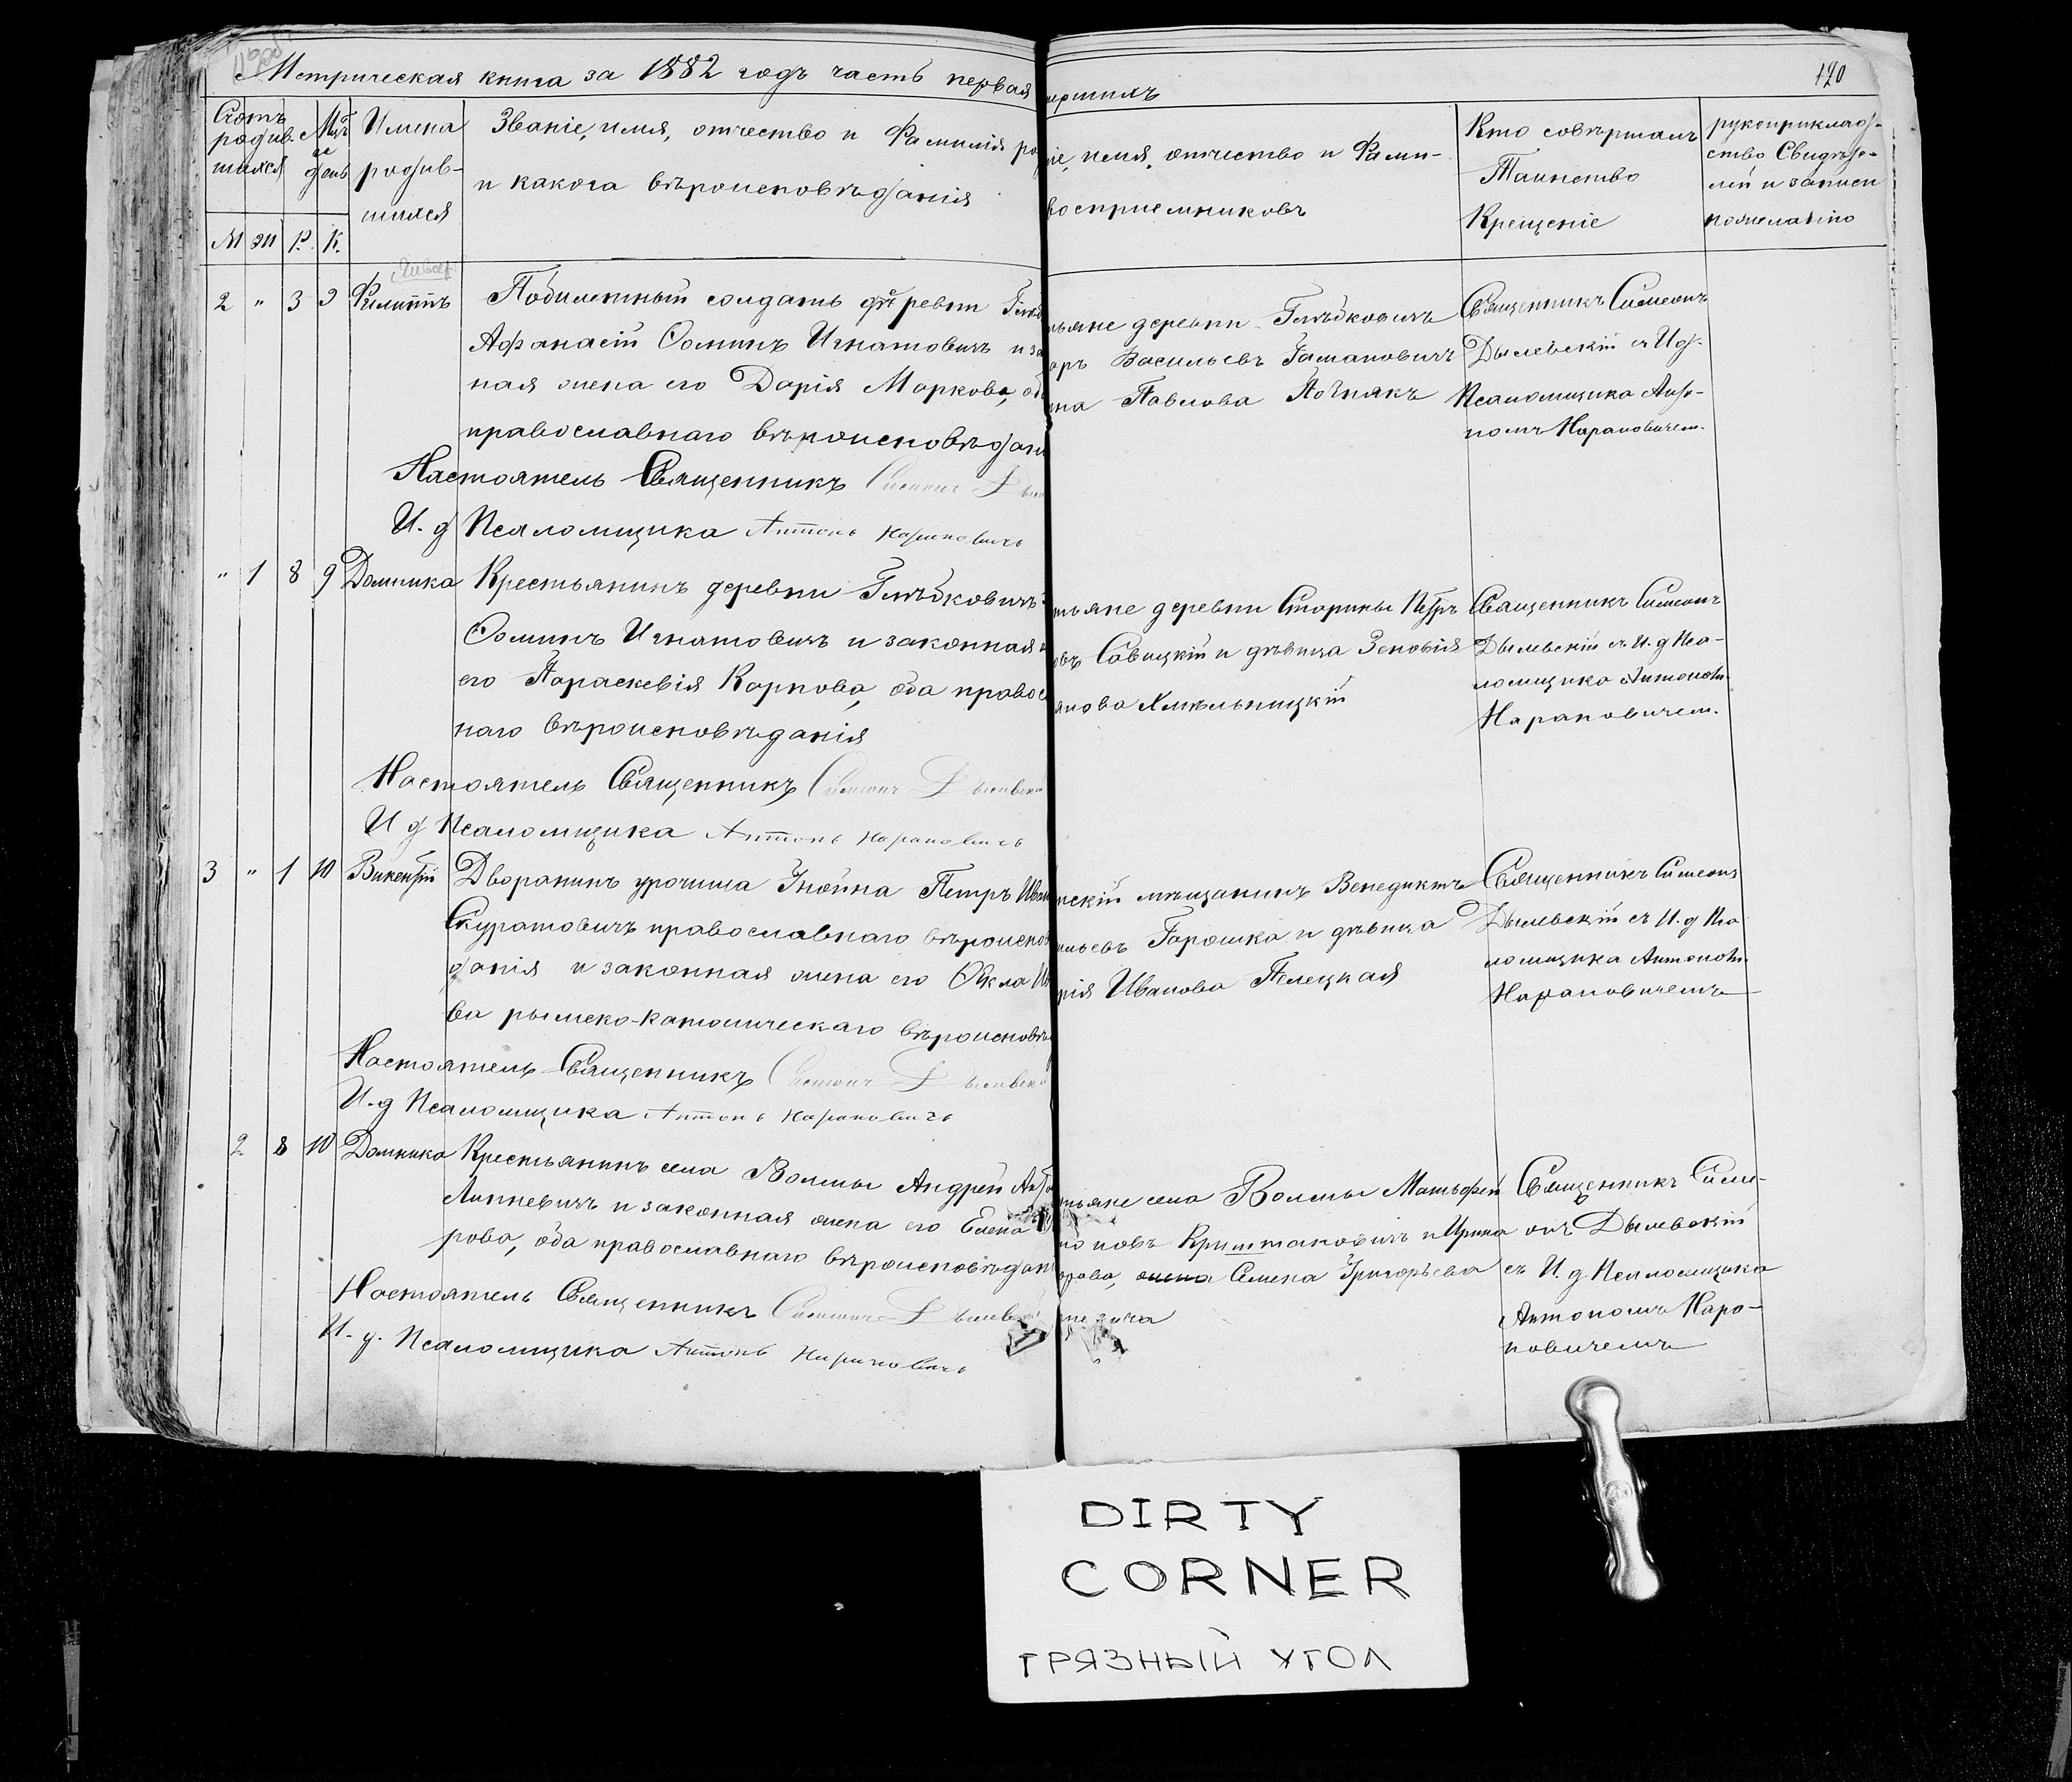 Метрическая книга за 1882 годъ часть первая
120
Счетъ родив-шихся
Мѣс. и день
Имена родив-шихся
Званіе, имя, отчество и Фамилія
и какога вѣроисповѣданія
іе, имя, отчество и Фами-
восприемниковъ
Кто совершалъ
Таинство
Крещеніе
рукоприклад-
ство Свидѣте-
лей и записи
по желанію
М Ж Р. К.
Январ.
2 " 3 9 Филиппъ
Побилетный солдатъ деревни
Афанасій Ѳоминъ Игнатовичъ и за
ная жена его Дарія Маркова, об
православнаго вѣроисповѣдан
Настоятель Священникъ Симеон Дыл
И. д Псаломщика Антонъ Наранович
ьяне деревни Глѣбковичъ
Васильевъ Гаманович
Павлова
Священникъ Симеонъ
Дылевскій съ И д.
Псаломщика Анто-
номъ Нарановичем.
" 1 8 9 Домника
Крестьянинъ деревни Глѣбковичъ
Ѳоминъ Игнатовичъ и законная
его Параскевія Карпова, оба правос
наго вѣроисповѣданія
Настоятель Священникъ Симеон Дылевск
И д Псаломщика Антонъ Наранович
тьяне деревни Старины Петръ
овъ Савицкій и дѣвица Зеновія
анова Хмѣльницкій
Священникъ Симеонъ
Дылевскій съ И. д Пса-
ломщика Антоном
Нарановичем.
3 " 1 10 Викентій
Дворанинъ урочища Петръ Иван
Скуратовичъ православнаго вѣроиспов
данія и законная жена его Ѳекла Ив
ва рымско-католическаго вѣроисповѣ
Настоятель Священникъ Симеон Дылевск
И. д Псаломщика Антонъ Наранович
нскій мѣщанинъ Венедиктъ
ильевъ Гарошка и дѣвица
рія Иванова Пелецкая
Священникъ Симеонъ
Дылевскій съ И. д Пса
ломщика Антоном
Нарановичемъ
2 8 10 Домника
Крестьянинъ села Волмы Андрей Анто
Липневичъ и законная жена его Елена
рова, оба православнаго вѣроисповѣдан
Настоятель Священникъ Симеон Дылевск
И. д. Псаломщика Антонъ Наранович
тьяне села Волмы Матѳей
новъ Криштановичъ и Ирина
орова, жена Семена Григорьева
Священникъ Симе-
онъ Дылевскій
съ И. д Псаломщика
Антономъ Нара-
новичемъ
DIRTY
CORNER
ГРЯЗНЫЙ УГОЛ